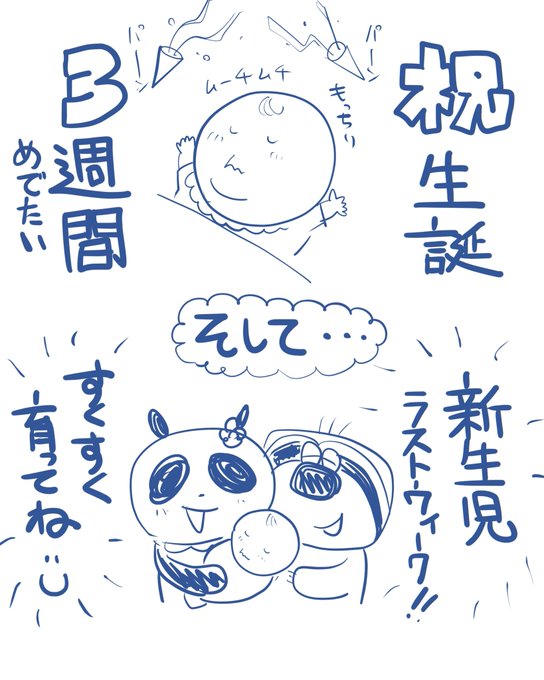 祝
生誕
3
週間
めでたい
パーン
パーン
ムーチムチ
もっちぃ
そして・・・
新生児
ラストウィーク!!
すくすく
育ってね